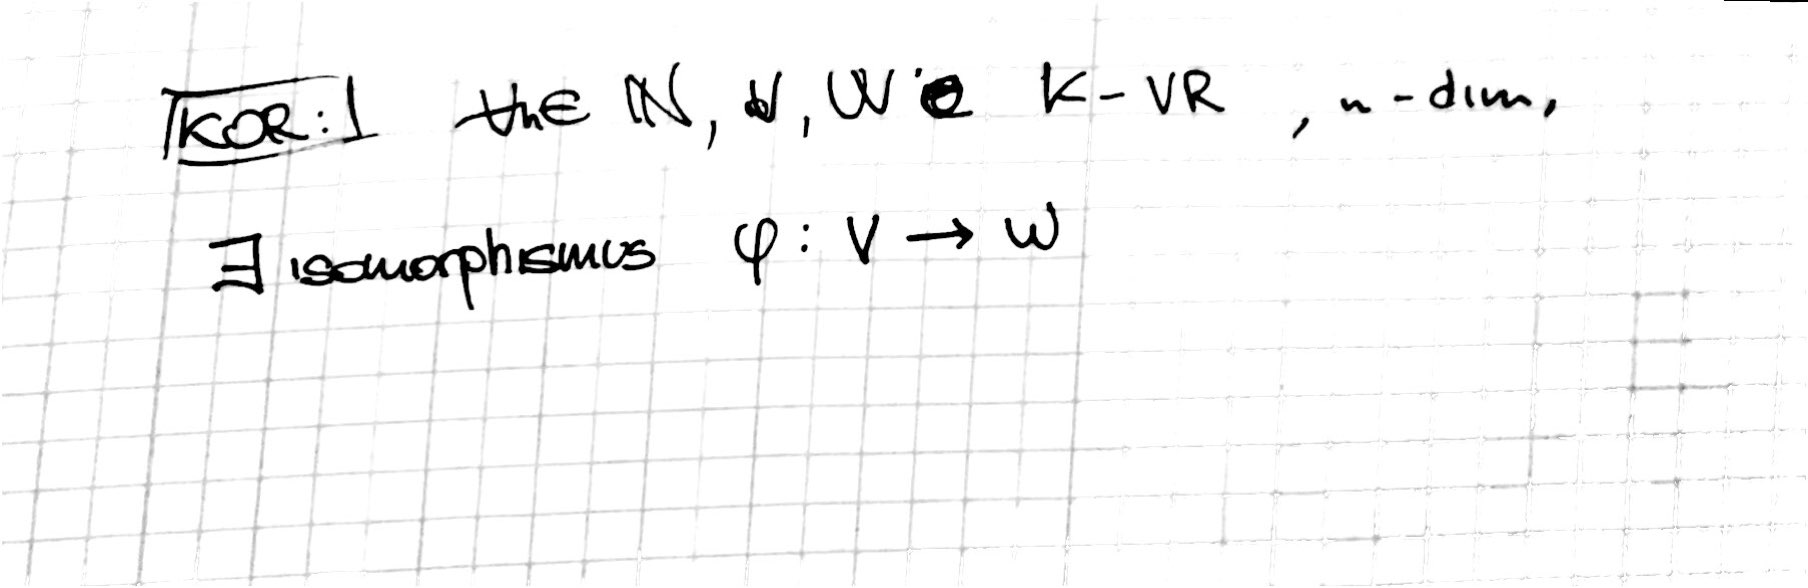 KOR: ∀n∈ ℕ, V, W K-VR, n-dim,
∃ isomorphismus φ: V → W